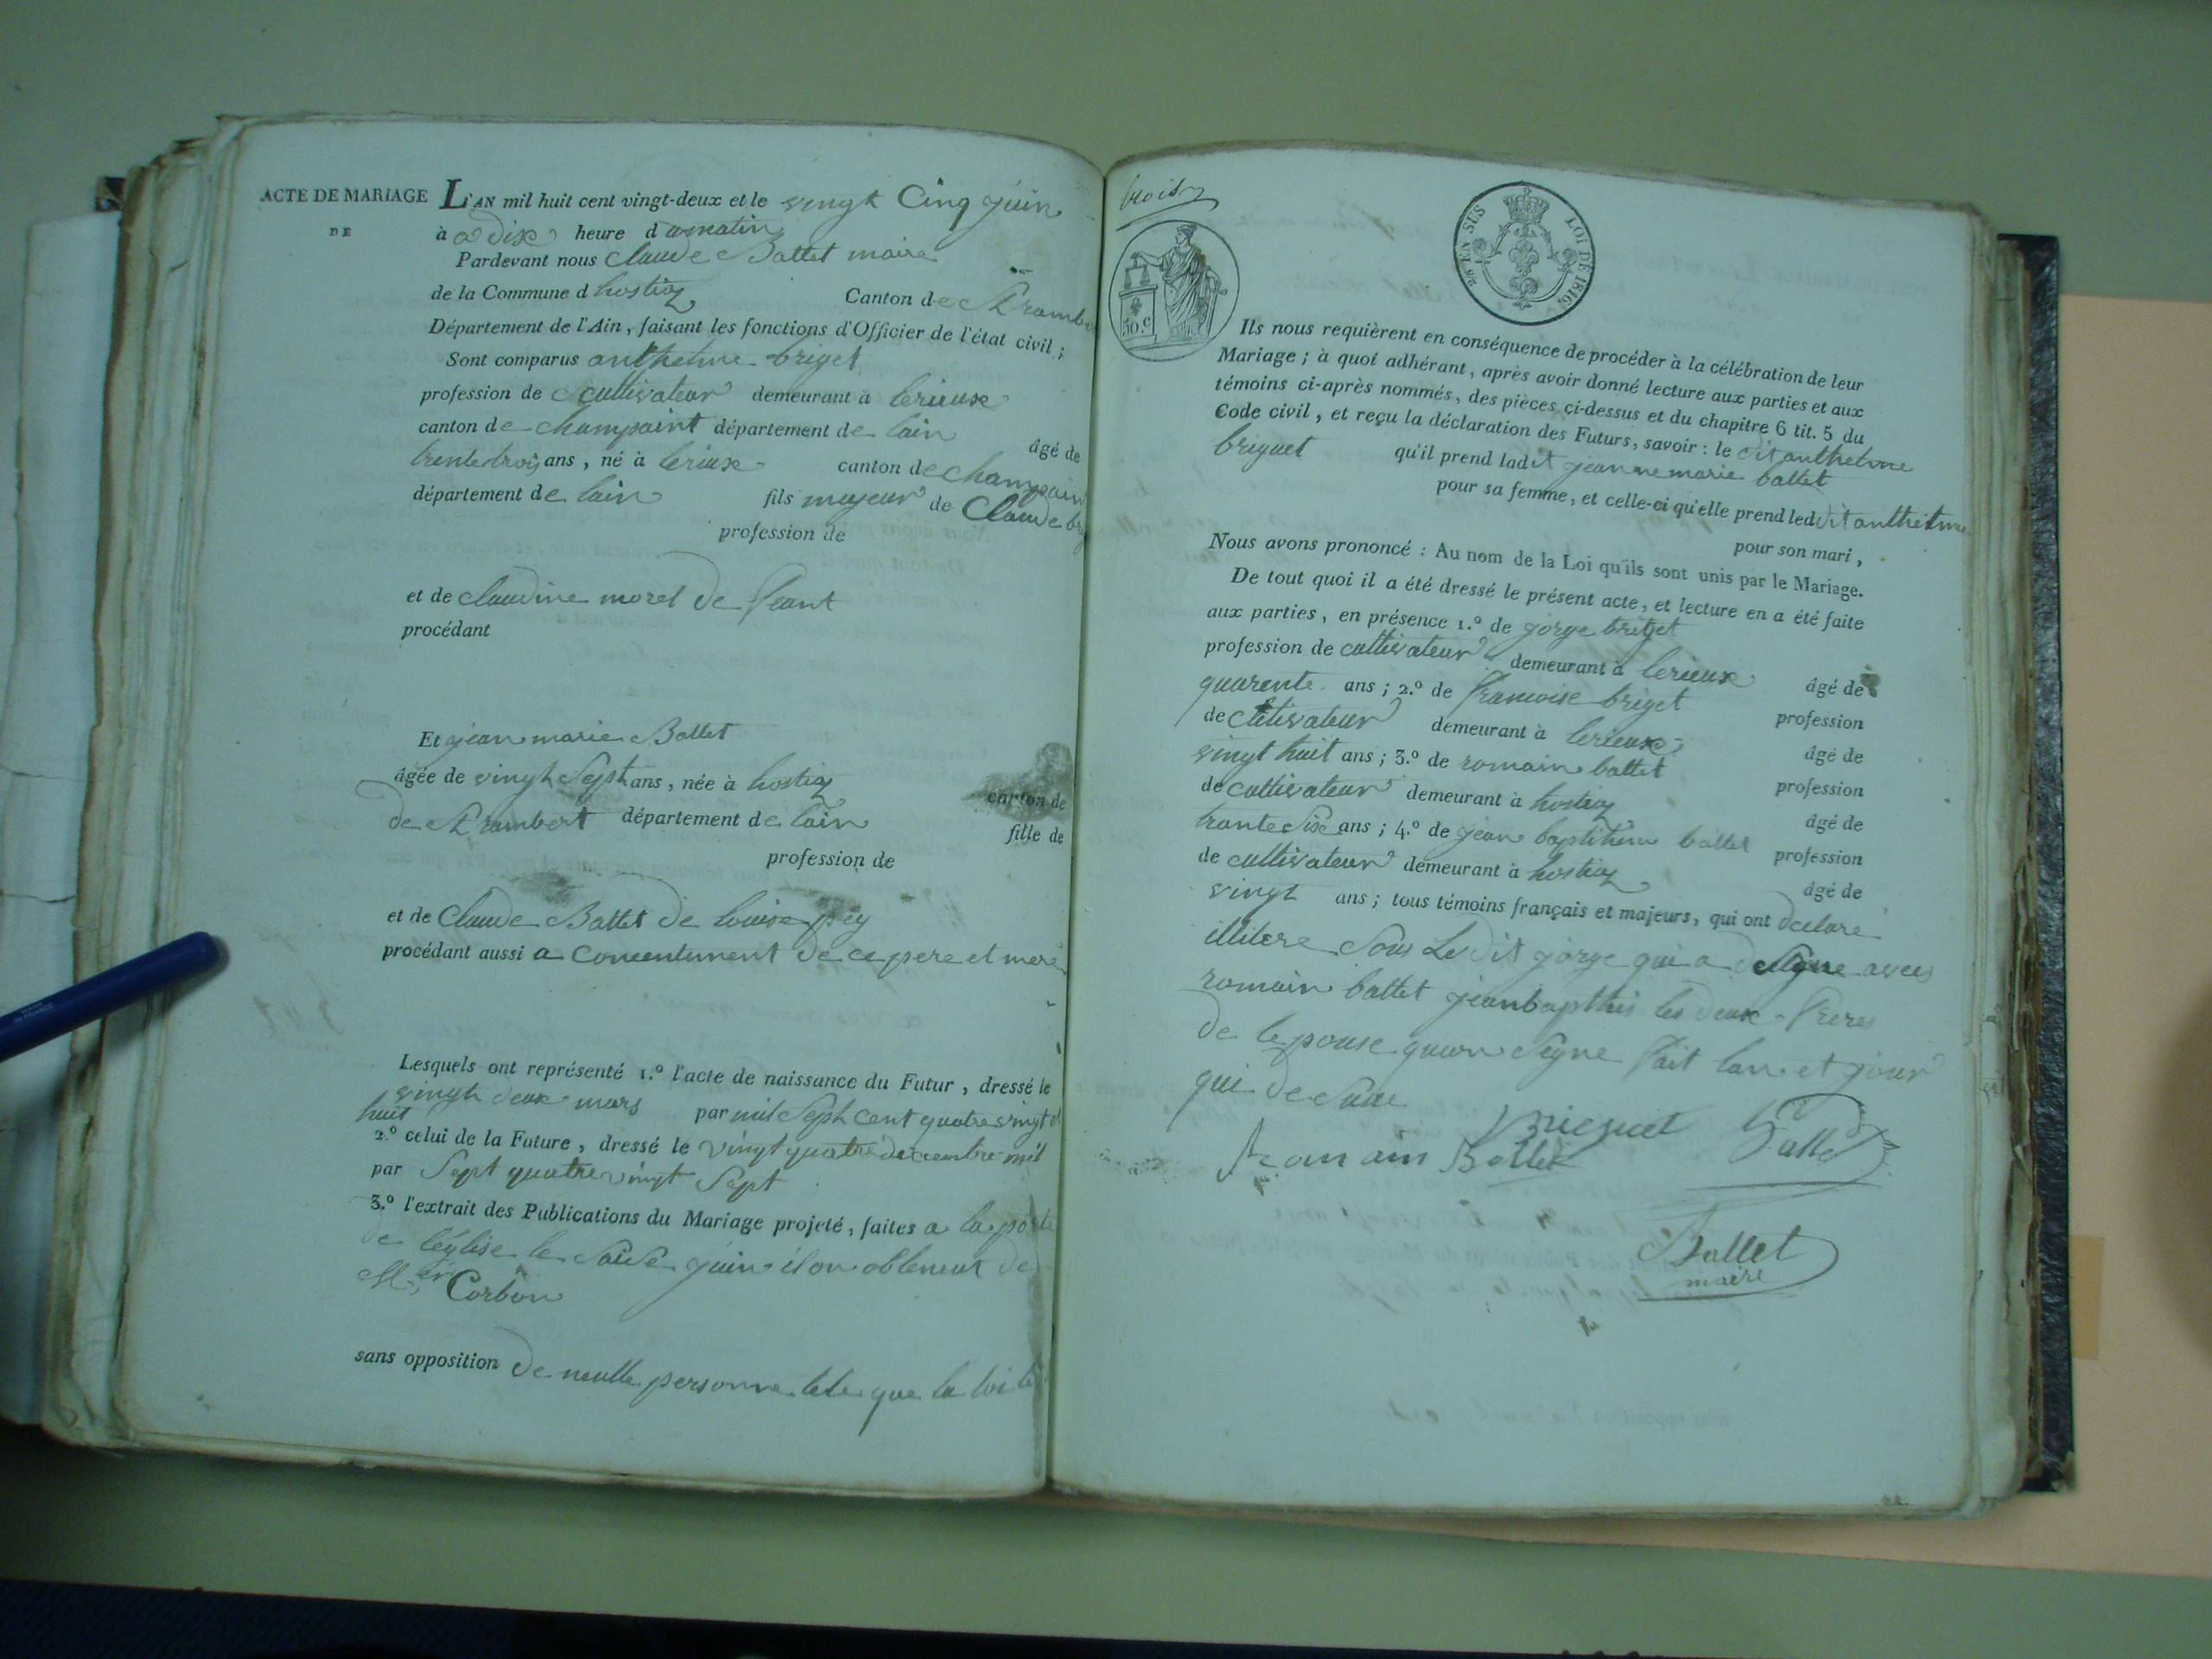 ACTE DE MARIAGE
DE
L'AN mil huit cent vingt-deux et le vingt Cinq juin
à a dix heure d umatin
Pardevant nous Claude Ballet maire
de la Commune d hostiaz Canton de St rambe
Département de l'Ain, faisant les fonctions d'Officier de l'état civil ;
Sont comparus anthelme briget
profession de cultivateur demeurant à lerieux
canton de champaint département de lain âgé de
trente trois ans, né à lerieux canton de champain
département de lain fils majeur de Claude bri
profession de
et de claudine morel de feant
procédant
Et jean marie Ballet
âgée de vingt Sept ans, née à hostiaz canton de
de St rambert département de lain fille de
profession de
et de Claude Ballet de louise pey
procédant aussi a concentement de ce pere et mere
Lesquels ont représenté 1.º l'acte de naissance du Futur, dressé le
vingt deux mars par mil Sept cent quatre vingt
huit
2.º celui de la Future, dressé le vingt quatre decembre mil
par Sept quatre vingt Sept
3.º l'extrait des Publications du Mariage projeté, faites a la porte
de léglise le juin il on obtenut de
Mr Corbon
sans opposition de neulle personne tele que la loi
trois
50.c
2/10 EN SUS LOI DE 1816.
Ils nous requièrent en conséquence de procéder à la célébration de leur
Mariage ; à quoi adhérant, après avoir donné lecture aux parties et aux
témoins ci-après nommés, des pièces ci-dessus et du chapitre 6 tit. 5 du
Code civil, et reçu la déclaration des Futurs, savoir : le dit anthelme
briguet qu'il prend ladit jeanne marie ballet
pour sa femme, et celle-ci qu'elle prend led dit anthelme
pour son mari,
Nous avons prononcé : Au nom de la Loi qu'ils sont unis par le Mariage.
De tout quoi il a été dressé le présent acte, et lecture en a été faite
aux parties, en présence 1.º de gorge briget
profession de cultivateur demeurant à lerieux âgé de
quarente ans ; 2.º de francoise briget profession
de cltivateur demeurant à lerieux âgé de
vingt huit ans ; 3.º de romain ballet profession
de cultivateur demeurant à hostiaz âgé de
trante Sixe ans ; 4.º de jean baptitin ballet profession
de cultivateur demeurant à hostiaz âgé de
vingt ans ; tous témoins français et majeurs, qui ont declare
illitere Sous Le dit gorge qui a Signe avecs
romain ballet jeanbapthis les deux freres
de le pouse quon Signe fait lan et jour
qui de Sure
bricquet Ballet
Romain Ballet
Ballet
maire